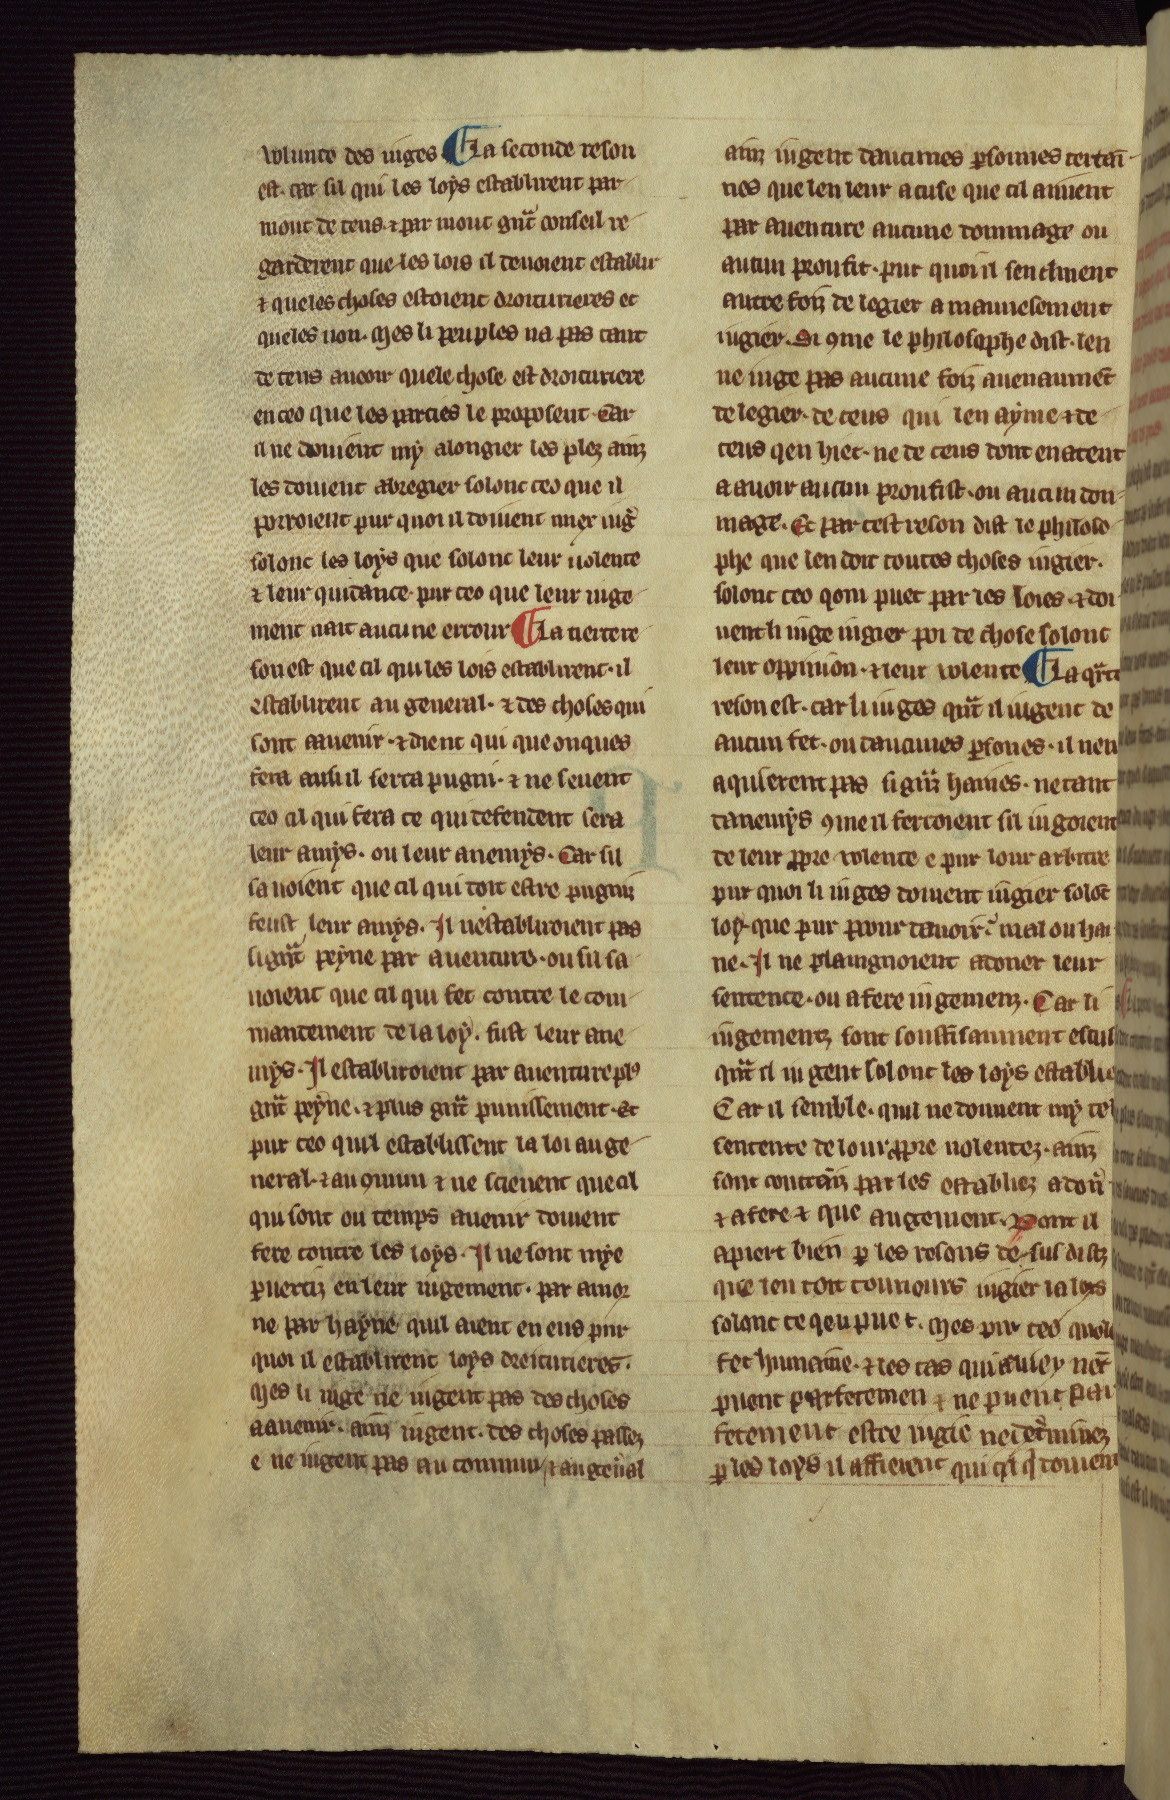 volunte des iuges ¶ La seconde reson
est. car sil qui les loys establirent par
mout de tens ⁊ par mout gnt̃ conseil re
garderent que les lois il deuoient establir
⁊ queles choses estoient droiturieres et
queles non. Mes li peuples na pas tant
de tens auoir quele chose est droituriere
en ceo que les parties le proposent. Car
il ne doiuent my alongier les plez ainz
les doiuent abregier solonc ceo que il
porroient pur quoi il doiuent iug̃
solonc les loys que solonc leur uolente
⁊ leur quidance pur ceo que leur iuge
ment nait aucune errour ¶ La tierce re
son est que cil qui les lois establirent. il
establirent au general. ⁊ des choses qui
sont a auenir. ⁊ dient qui que onques
fera ausi il serra pugni. ⁊ ne seuent
ceo cil qui fera ce qui defendent sera
leur amys. ou leur anemys. Car sil
sauoient que cil qui doit estre pugniz
feust leur amys. Il nestabliroient pas
si gnt̃ peyne par auenture. ou sil sa
uoient que cil qui fet contre le com
mandement de la loy. fust leur ane
mys. Il establiroient par auenture plꝰ
gnt̃ peyne. ⁊ plus gnt̃ punissement. Et
pur ceo quil establissent la loi au ge
neral. ⁊ au ꝯmun ⁊ ne scieuent que cil
qui sont ou temps auenir doiuent
fere contre les loys. Il ne sont mye
ꝑuertiz en leur iugement. par amor
ne par hayne quil aient en eus pur
quoi il establirent loys droiturieres.
Mes li iuge ne iugent pas des choses
a auenir. ainz iugent. des choses passez
e ne iugent pas au commun ⁊ au gen̾al
ainz iugent daucunes ꝑsonnes certai
nes que len leur acuse que cil auient
par auenture aucune dommage ou
aucun proufit. pur quoi il sen clinent
autre foiz de legier a mauuesement
iugier. Si ꝯme le philosophe dist. len
ne iuge pas aucune foiz auenaumẽt
de legier. de ceus qui len ayme ⁊ de
ceus qen hiet. ne de ceus dont en atent
a auoir aucun proufist. ou aucun dou
mage. Et par cest reson dist le philoso
phe que len doit toutes choses iugier.
solonc ceo qom puet par les loies. ⁊ doi
uent li iuge iugier poi de chose solonc
leur oppinion. ⁊ leur volente ¶ La qr̃te
reson est. car li iuges qñt il iugent de
aucun fet. ou daucunes ꝑsones. il nen
aquierent pas si gñz haines. ne tant
danemys ꝯme il feroient sil iugoient
de leur ꝓpre volente e pur lour arbitre
pur quoi li iuges doiuent iugier solõc
loy. que pur pour dauoir. mal ou hai
ne. Il ne plaingnoient a doner leur
sentence. ou a fere iugemenz. Car li
iugementz sont souffisaument escus
qñt il iugent solonc les loys establie
Car il semble. quil ne donnent my ce
sentence de lour ꝓpre uolentez. ainz
sont contrainz par les establiez a doñ
⁊ a fere ⁊ que augement. Dont il
apiert bien ꝑ les resons de sus distz
que len doit touiours iugier la loys
solonc ce qeu puet. Mes pur ceo
fet humaine. ⁊ les cas qui
puent parfetemen ⁊ ne puent par
fetement estre iugie ne det̾minez
ꝑ les loys il affierent qui doiuent